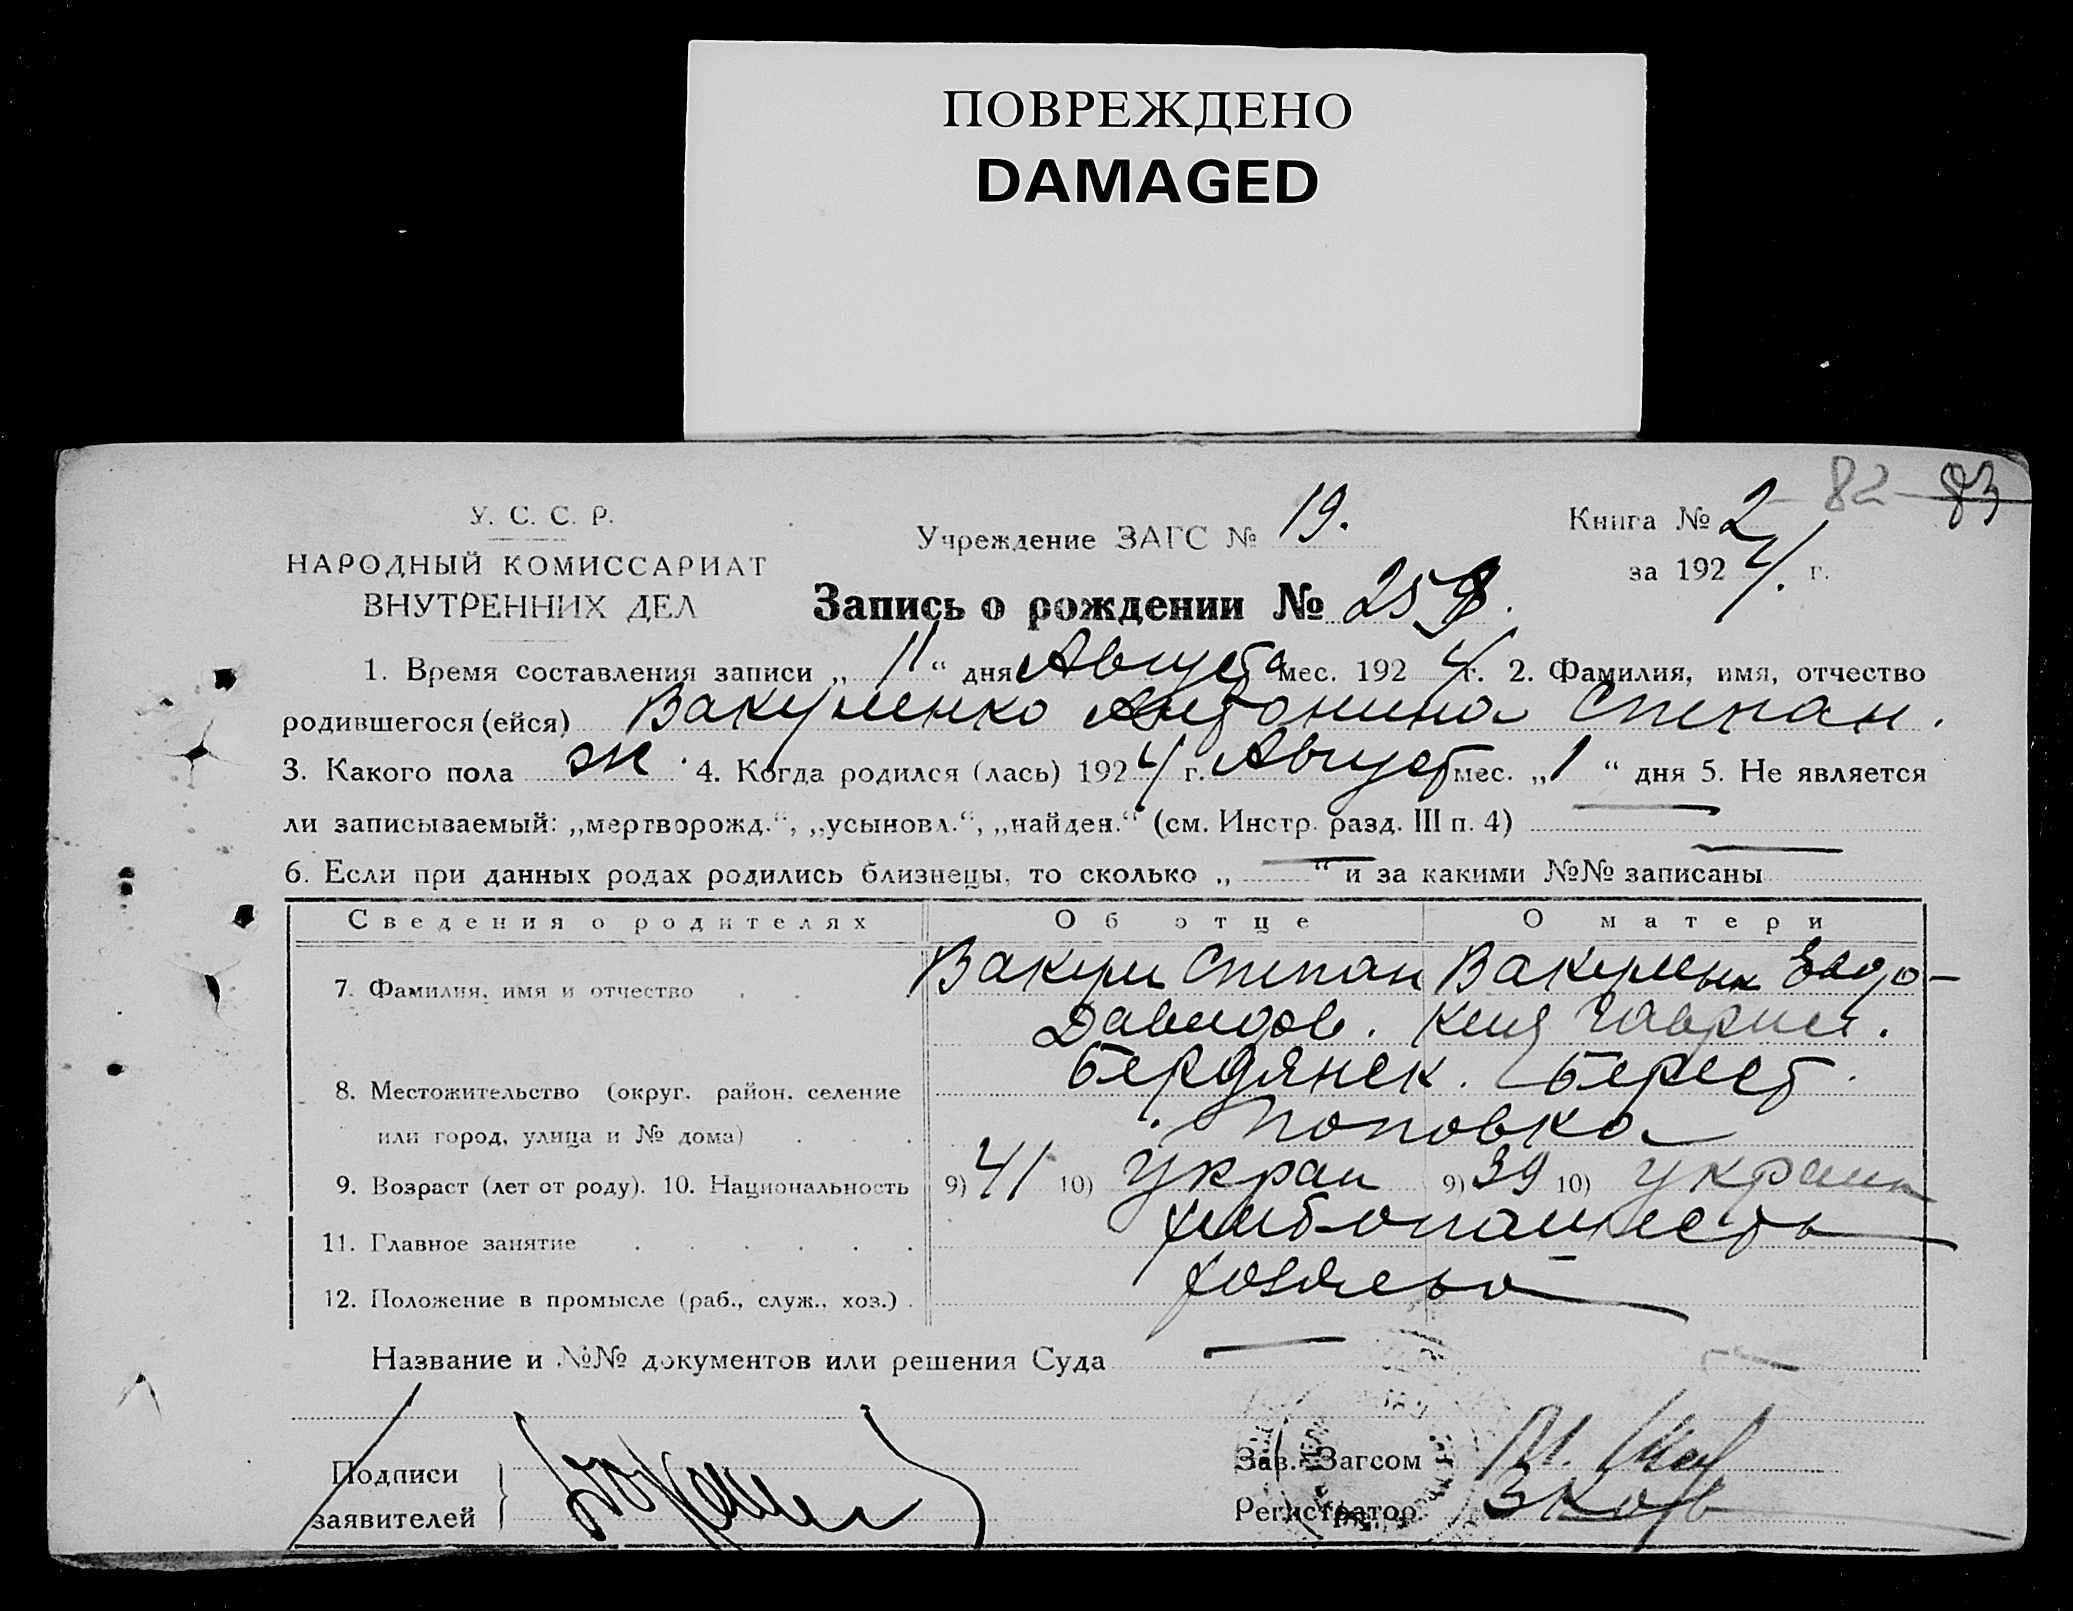 ПОВРЕЖДЕНО
DAMAGED
82 83
У. С. С. Р.
НАРОДНЫЙ КОМИССАРИАТ
ВНУТРЕННИХ ДЕЛ
Учреждение ЗАГС № 19.
Книга № 2
за 1924. г.
Запись о рождении № 258.
1. Время составления записи „ 11 “ дня Августа мес. 1924 г. 2. Фамилия, имя, отчество
родившегося (ейся) Вакуленко Антонина Степан.
3. Какого пола ж 4. Когда родился (лась) 1924 г. Август мес. „ 1 “ дня 5. Не является
ли записываемый: „мертворожд.“, „усыновл.“, „найден.“ (см. Инстр. разд. III п. 4) —
6. Если при данных родах родились близнецы, то сколько „ — “ и за какими №№ записаны —
Сведения о родителях Об отце О матери
7. Фамилия, имя и отчество Вакул Степан Вакуленк Евдо-
Давидов. кия Гаврил.
8. Местожительство (округ, район, селение Бердянск. Берест.
или город, улица и № дома) Поповка
9. Возраст (лет от роду). 10. Национальность 9) 41 10) Украи 9) 39 10) украин
11. Главное занятие хлебопашесть
12. Положение в промысле (раб., служ., хоз.) хозяева
Название и №№ документов или решения Суда — —
Подписи
заявителей
Зав. Загсом
Регистратор